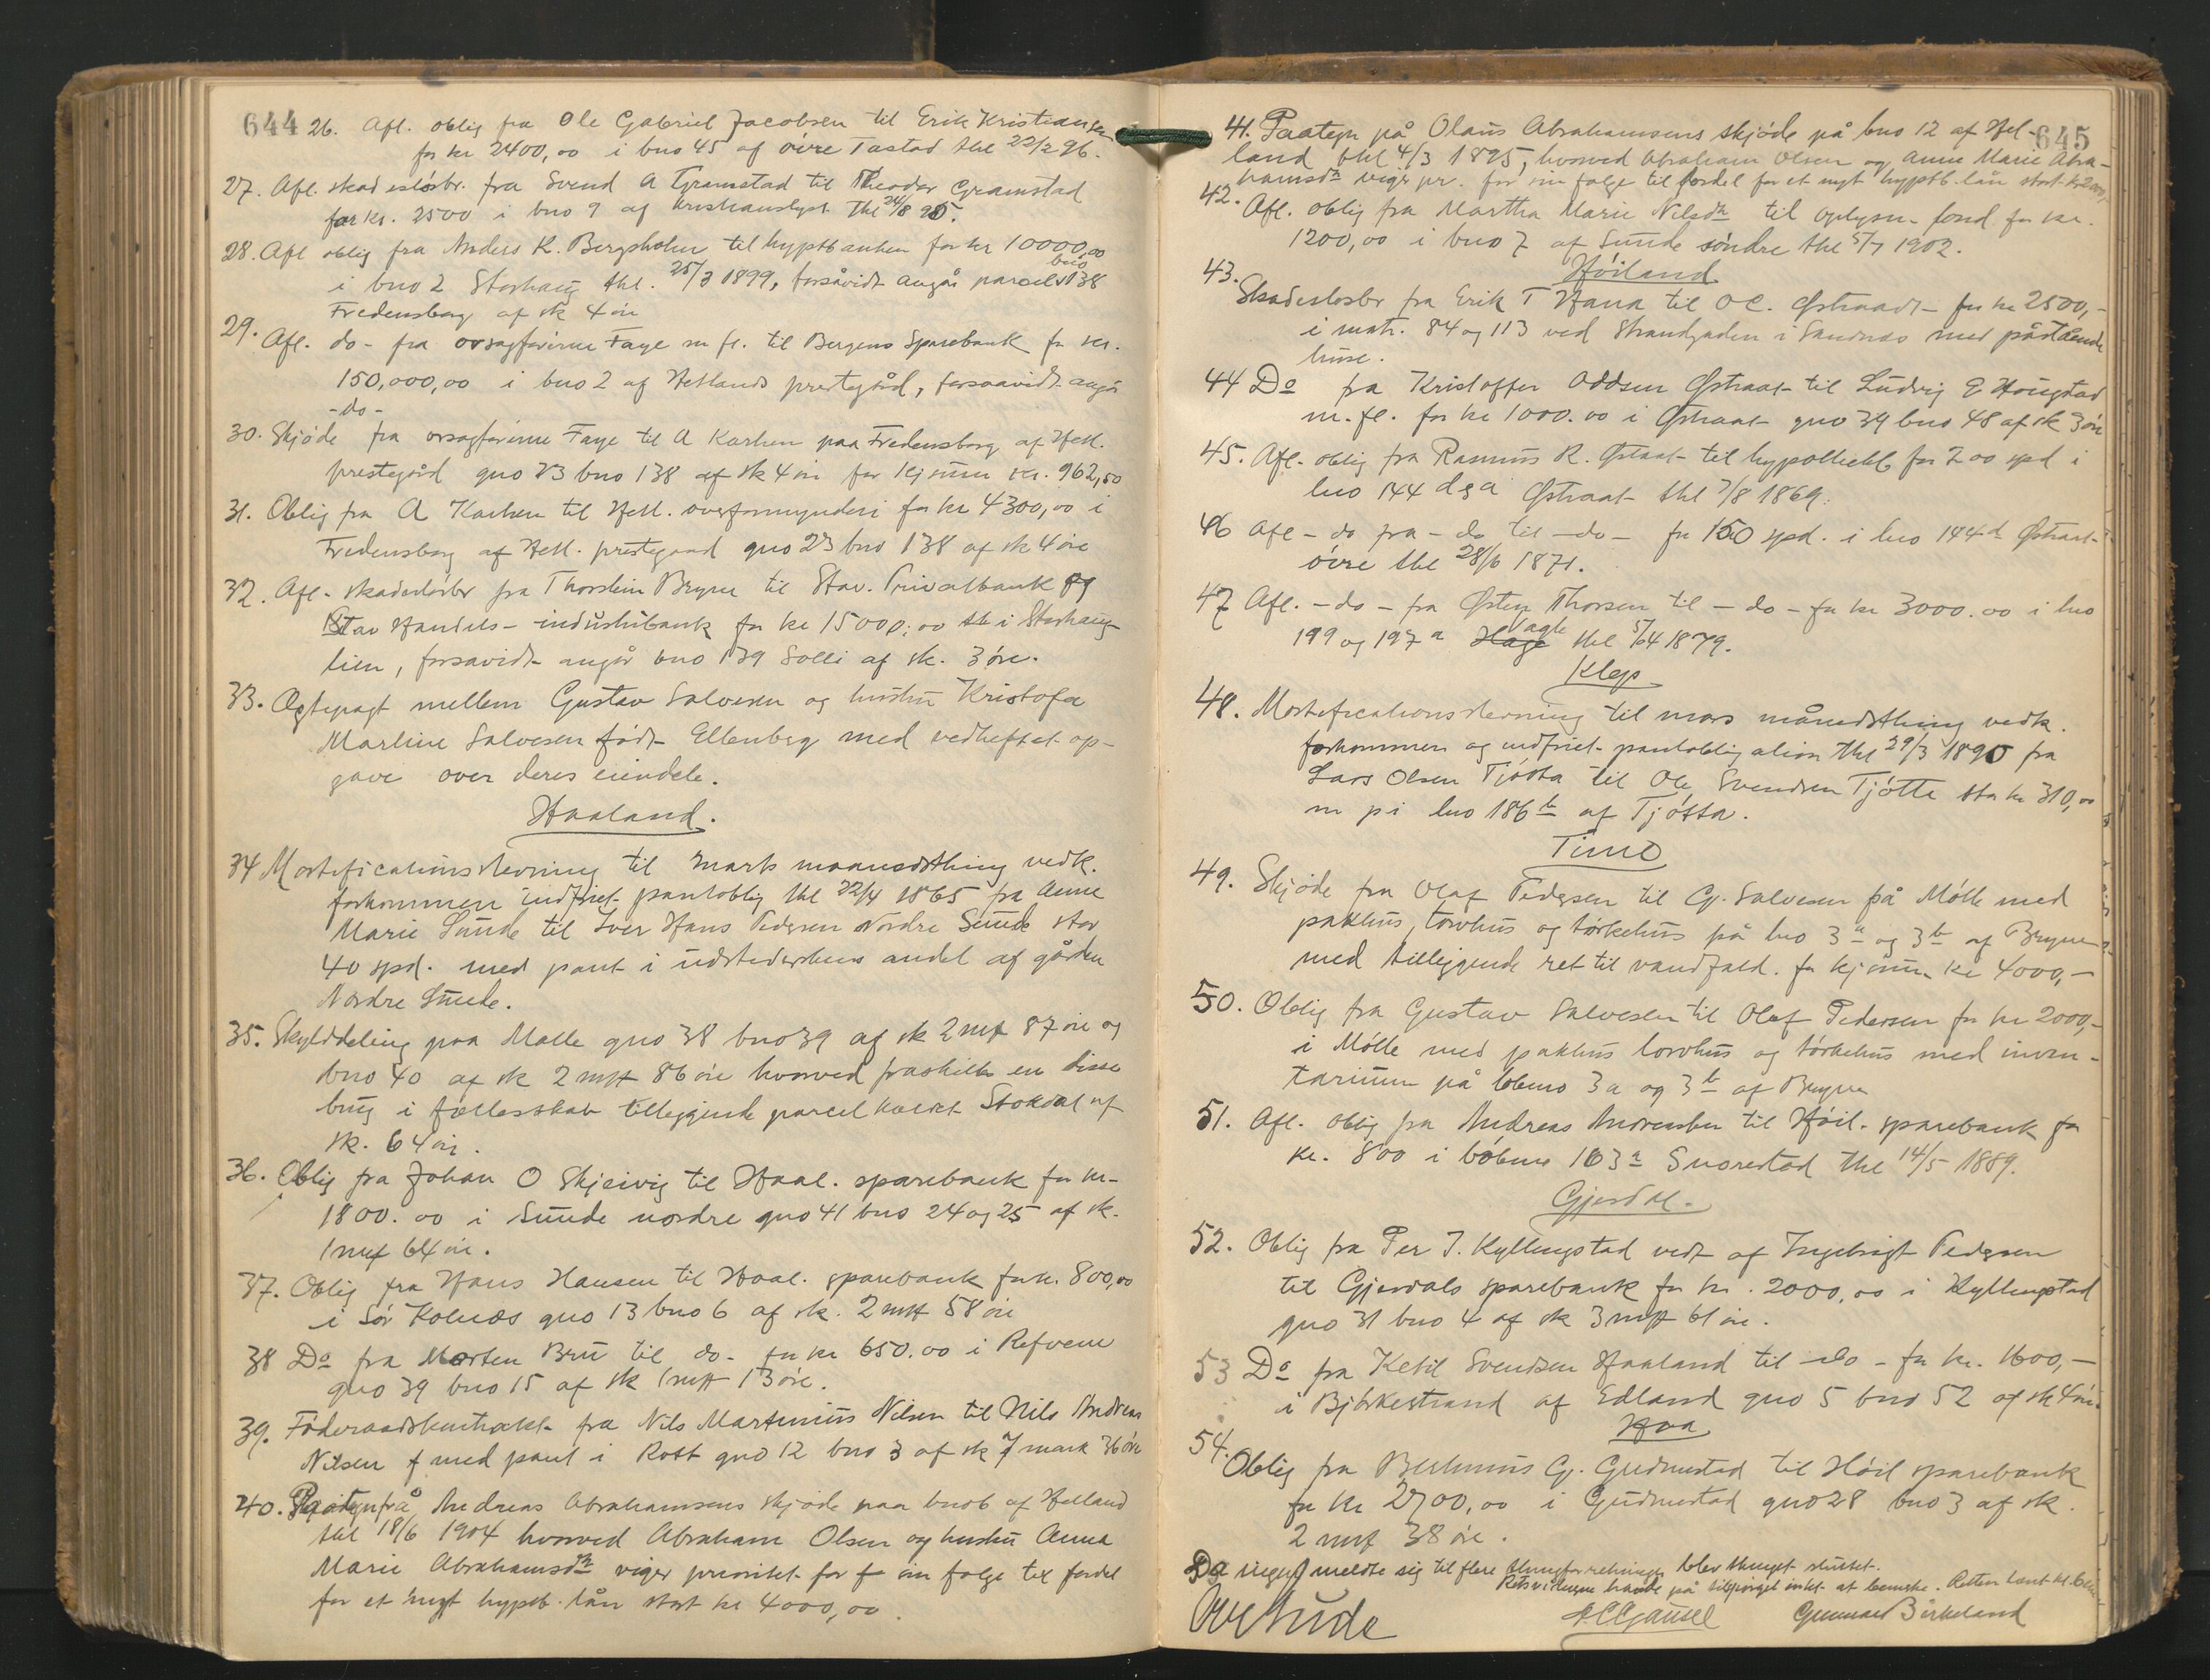 644
26. Afl. oblig fra Ole Gabriel Jacobsen til Erik Kristiansen
for kr 2400,00 i bno 45 af övre Tastad thl 22/2 96.
27. Afl. skadeslösbr. fra Svend A Gramstad til Theodor Gramstad
for kr. 2500 i bno 9 af Kristianslyst Thl 24/8 95.
28. Afl oblig fra Anders K. Bergsholm til hyptbanken for kr 10000,00
i bno 2 Storhaug thl. 25/3 1899, forsåvidt angår parcel bno 138
Fredensborg af sk 4 öre
29. Afl. do - fra oversagförerne Faye m fl. til Bergens Sparebank for kr.
150,000,00 i bno 2 af Hetlands prestegård, forsaavidt angår
- do -
30. Skjöde fra orsagförerne Faye til A Karlsen paa Fredensborg af Hetl.
prestegård gno 23 bno 138 af sk 4 öre for kjösum kr. 962,50
31. Oblig fra A Karlsen til Hetl. overformynderi for kr 4300,00 i
Fredensborg af Hetl. prestegaard gno 23 bno 138 af sk 4 öre
32. Afl. skadeslösbr fra Thorstein Bryne til Stav. Privatbank og
Stav Handels- industribank for kr 15000,00 i Storhaug-
lien, forsavidt angår bno 139 Solli af sk. 3 öre.
33. Ægtepagt mellem Gustav Salvesen og hustru Kristofa
Martine Salvesen födt Ellenberg med vedheftet op-
gave over deres eiendele.
Haaland.
34 Mortificationsstevning til marts maanedsthing vedk.
forkommen indfriet pantoblig thl 22/4 1865 fra Anne
Marie Sunde til Iver Hans Pedersen Nordre Sunde stor
40 spd. med pant i udstederskens andel af gården
Nordre Sunde.
35. Skylddeling paa Malle gno 38 bno 39 af sk 2 mk 87 öre og
bno 40 af sk 2 mk 86 öre hvorved fraskilles en disse
brug i fællesskab tilleggende parcel kaldet Stokdal af
sk. 64 öre.
36. Oblig fra Johan O Skjeivig til Haal. sparebank for kr-
1800.00 i Sunde nordre gno 41 bno 24 og 25 af sk.
1 mk 64 öre.
37. Oblig fra Hans Hansen til Haal. sparebank for kr. 800,00
i Sör Kolnes gno 13 bno 6 af sk. 2 mk 58 öre
38 Do fra Morten Bru til do - for kr 650.00 i Refvem
gno 39 bno 15 af sk 1 mk 13 öre.
39. Föderaadskontrakt fra Nils Martinius Nilsen til Nils Andreas
Nilsen f med pant i Rott gno 12 bno 3 af sk 7 mark 36 öre
40. Paategn på Andreas Abrahamsens skjöde paa bno 6 af Helland
thl 18/6 1904 hvorved Abraham Olsen og hustru Anna
Marie Abrahamsdtr viger prioritet for f sin folge til fordel
for et nyt hyptb. lån stort kr 4000,00.
645
41. Paategn på Olaus Abrahamsens skjöde på bno 12 af Hel-
land thl 4/3 1895, hvorved Abraham Olsen og Anne Marie Abra-
hamsdtr viger pr. for sin folge til fordel for et nyt hyptb. lån stort kr 2000,-
42. Afl. oblig fra Martha Marie Nilsdtr til oplysn. fond for kr.
1200,00 i bno 7 af Sunde söndre thl 5/7 1902.
Höiland
43. Skadeslosbr fra Erik T Hana til O C. Østraadt for kr 2500,-
i matr. 84 og 113 ved Strandgaden i Sandnes med påstående
huse.
44 Do fra Kristoffer Oddsen Østraat til Ludvig E Hougstad
m. fl. for kr 1000.00 i Østraat gno 39 bno 48 af sk 3 öre
45. Afl. oblig fra Rasmus R. Østraat til hypothekb for 200 spd i
lno 144 d & a Østraat thl 7/8 1869.
46 Afl - do fra - do til - do - for 150 spd. i lno 144 d Østraat
övre thl 28/6 1871.
47 Afl. - do - fra Østen Thorsen til - do - for kr 3000.00 i lno
199 og 197 a Hage Vagle thl 5/4 1879.
Klep
48. Mortificationsstevning til mars månedsthing vedk.
forkommen og indfriet pantobligation thl 29/3 1890 fra
Lars Olsen Tjötta til Ole Svendsen Tjötte stor kr 310,00
m p i lno 186 b af Tjötta.
Time
49. Skjöde fra Olaf Pedersen til G. Salvesen på Mölle med
pakhus, torvhus og törkehus på lno 3 a og 3 b af Bryne
med tilliggende ret til vandfald. for kjösum kr 4000,-
50. Oblig fra Gustav Salvesen til Olaf Pedersen for kr 2000,-
i Mölle med pakhus torvhus og törkehus med inven-
tarium på löbeno 3 a og 3 b af Bryne
51. Afl. oblig fra Andreas Andreassen til Höil. sparebank for
kr. 800 i böbno 163 a Snorestad thl 14/5 1889.
Gjesdal.
52. Oblig fra Per J. Kyllingstad vedt af Ingebrigt Pedersen
til Gjesdals sparebank for kr. 2000,00 i Kyllingstad
gno 31 bno 4 af sk 3 mk 61 öre.
53 Do fra Ketil Svendsen Haaland til - do - for kr. 1600,-
i Björkestrand af Edland gno 5 bno 52 af sk 4 öre.
Haa
54. Oblig fra Berhinus G. Gudmestad til Höil sparebank
for kr 2700,00 i Gudmestad gno 28 bno 3 af sk.
2 mk 38 öre.
Da ingen meldte sig til flere thingforretninger blev thinget sluttet.
Retsvidnerne havde på tilspörgsel intet at bemerke. Retten hævet kl.
A C Gausel Gunnar Birkeland